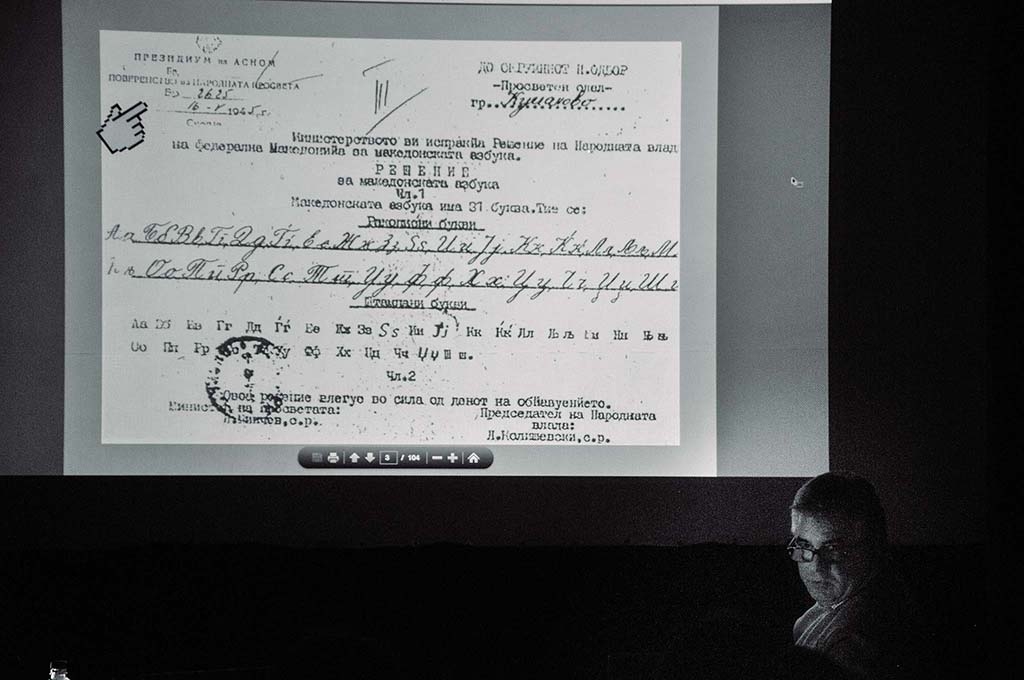 ПРЕЗИДИУМ на АСНОМ
Бр.
ПОВЕРЕНСТВО на НАРОДНАТА ПРОСВЕТА
Бр 2625
16-V 1945 г.
Скопје
III
ДО ОКРУЖНИОТ Н.ОДБОР
-Просветен одел-
гр..Куманово
Министерството ви испраќа Решение на Народната влад
на федерална Македонија за македонската азбука.
РЕШЕНИЕ
за македонската азбука
Чл.1
Македонската азбука има 31 буква.Тие се:
Ракописни букви
Аа Бб Вв Гг Дд Ѓѓ Ее Жж Зз Ѕѕ Ии Јј Кк Ќќ Лл Љљ М
Њњ Оо Пп Рр Сс Тт Уу Фф Хх Цц Чч Џџ Шш
Штампани букви
Аа Бб Вв Гг Дд Ѓѓ Ее Жж Зз Ѕѕ Ии Јј Кк Ќќ Лл Љљ Мм Нн Њњ
Оо Пп Рр Тт Уу Фф Хх Цц Чч Џџ Шш.
Чл.2
Овој решение влегуе во сила од денот на објавуењето.
Министер на просветата:
Председател на Народната
влада:
Л.Колишевски,с.р.
3 / 104